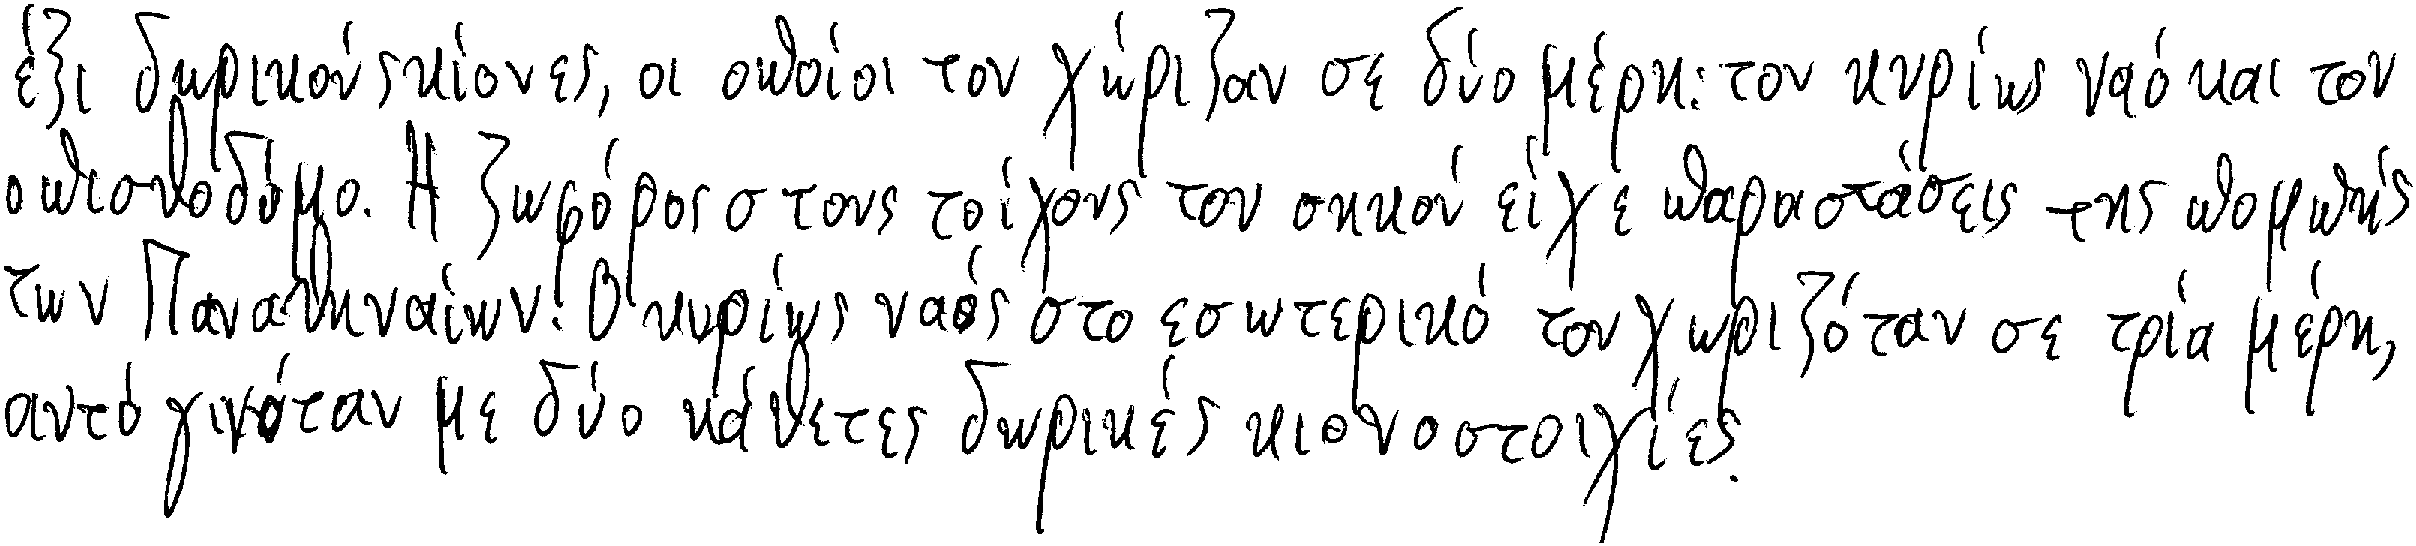 έξι δωρικούς κίονες, οι οποίοι τον χώριζαν σε δύο μέρη: τον κυρίως ναό και τον
οπισθοδόμο. Η ζωφόρος στους τοίχους του σηκού είχε παραστάσεις της πομπής
των Παναθηναίων. Ο κυρίως ναός στο εσωτερικό του χωριζόταν σε τρία μέρη,
αυτό γινόταν με δύο κάθετες δωρικές κιονοστοιχίες.